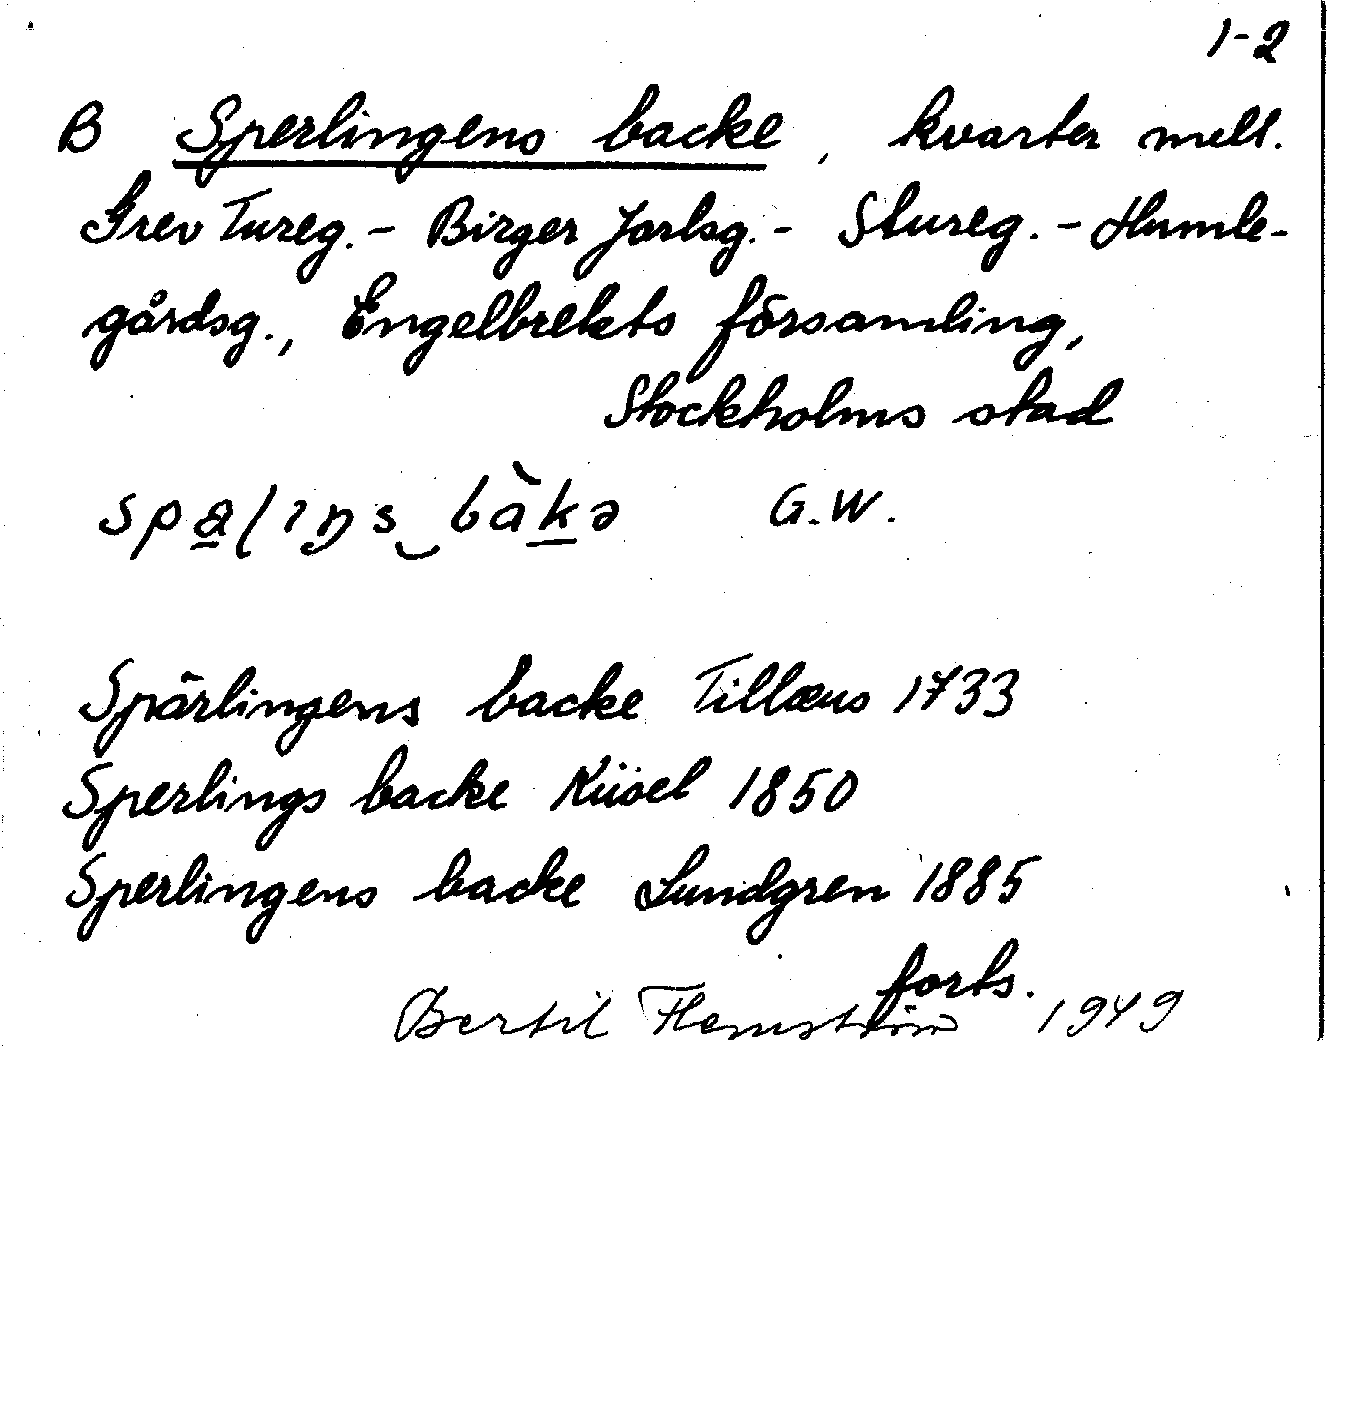 1-2
B Sperlingens backe, kvarter mell.
Grev Tureg. - Birger Jarlsg. - Stureg. - Humle-
gårdsg., Engelbrekts församling,
Stockholms stad
spa̲ɭɿŋs‿bàk̲ə G.W.
Spärlingens backe Tillæus 1733
Sperlings backe Küsel 1850
Sperlingens backe Lundgren 1885
forts.
Bertil Flemström 1949